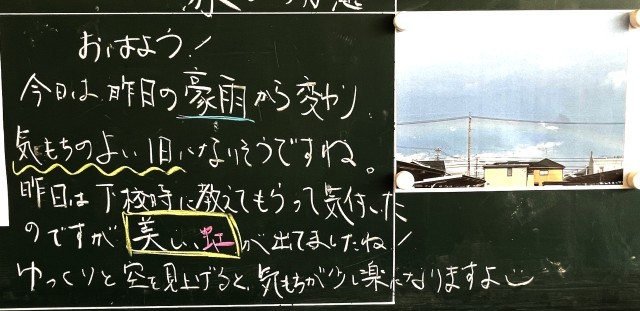 おはよう！
今日は昨日の豪雨から変わり
気もちのよい1日になりそうですね。
昨日は下校時に教えてもらって気付いた
のですが 美しい虹が出てましたね！
ゆっくりと空を見上げると、気もちが少し楽になりますよ